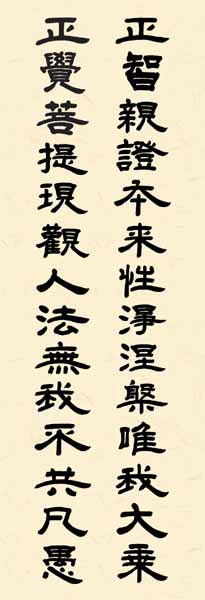 正智親證本来性淨涅槃唯我大乘
正覺菩提現觀人法無我不共凡愚